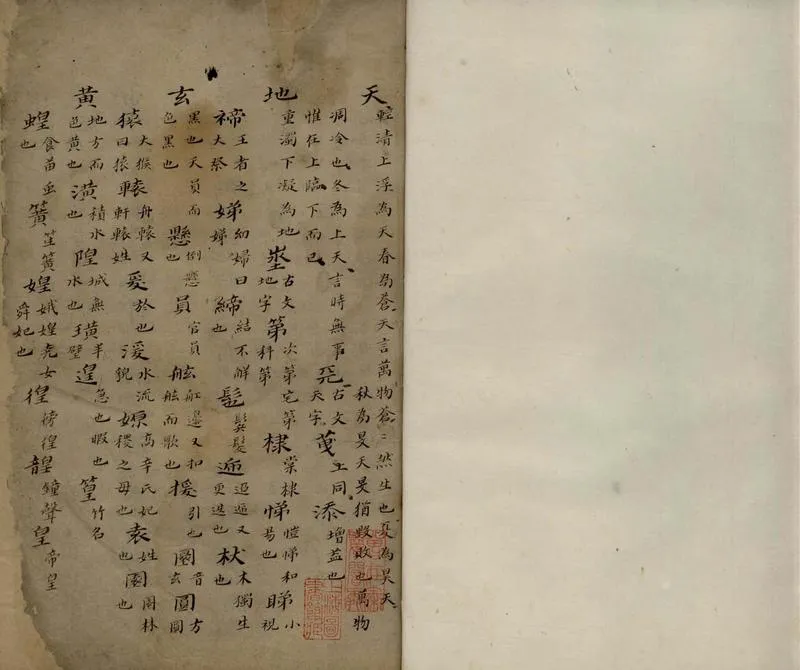 天 輕清上浮為天春為蒼天言萬物蒼〻然生也夏為昊天
秋為旻天旻猶愍也萬物
凋冷也冬為上天言時無事
惟在上臨下而已 古文天字 上同 添 增益也
地 重濁下凝為地 埊 古文地字 第 次第宅第科第 棣 棠棣 悌 愷悌和易也 睇 小視
禘 王者之大祭 娣 幼婦曰娣 締 結不解也 髢 遞 迢遞又更遞也 杕 木獨生也
玄 黑也天員而色黑也 懸 倒懸也 員 官員 舷 舡邊又扣舷而歌也 援 引也 圜 音玄 圓 方圓
猿 大猴曰猿 轅 舟轅又軒轅姓 爰 於也 湲 水流貌 嫄 高辛氏妃稷之母也 袁 姓也 園 園林也
黃 地方而色黃也 潢 積水也 隍 城無水也 璜 半璧 遑 急也暇也 篁 竹名
蝗 食苗虫也 簧 笙簧 媓 娥媓堯女舜妃也 徨 徬徨 韹 鐘聲 皇 帝皇